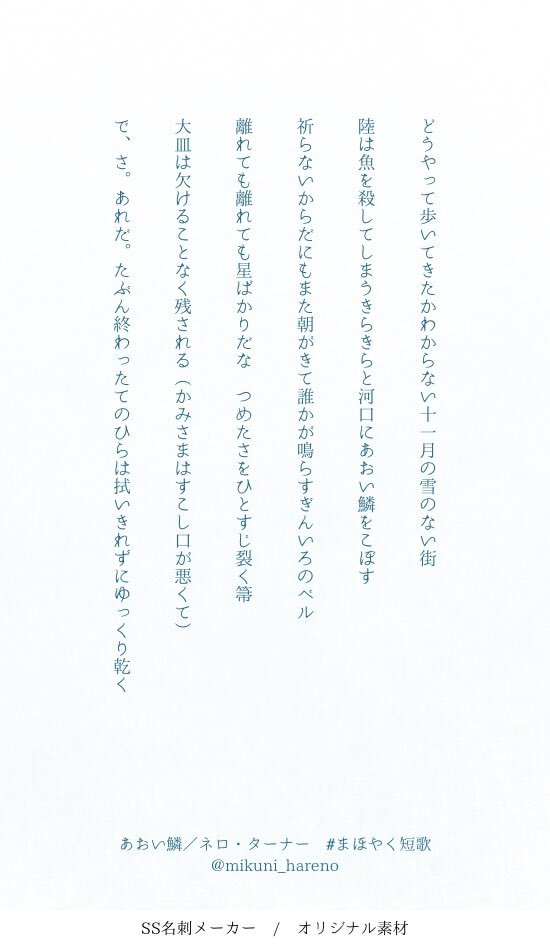 どうやって歩いてきたかわからない十一月の雪のない街
陸は魚を殺してしまうきらきらと河口にあおい鱗をこぼす
祈らないからだにもまた朝がきて誰かが鳴らすぎんいろのベル
離れても離れても星ばかりだな　つめたさをひとすじ裂く箒
大皿は欠けることなく残される（かみさまはすこし口が悪くて）
で、さ。あれだ。たぶん終わったてのひらは拭いきれずにゆっくり乾く
あおい鱗／ネロ・ターナー　#まほやく短歌
@mikuni_hareno
SS名刺メーカー　/　オリジナル素材